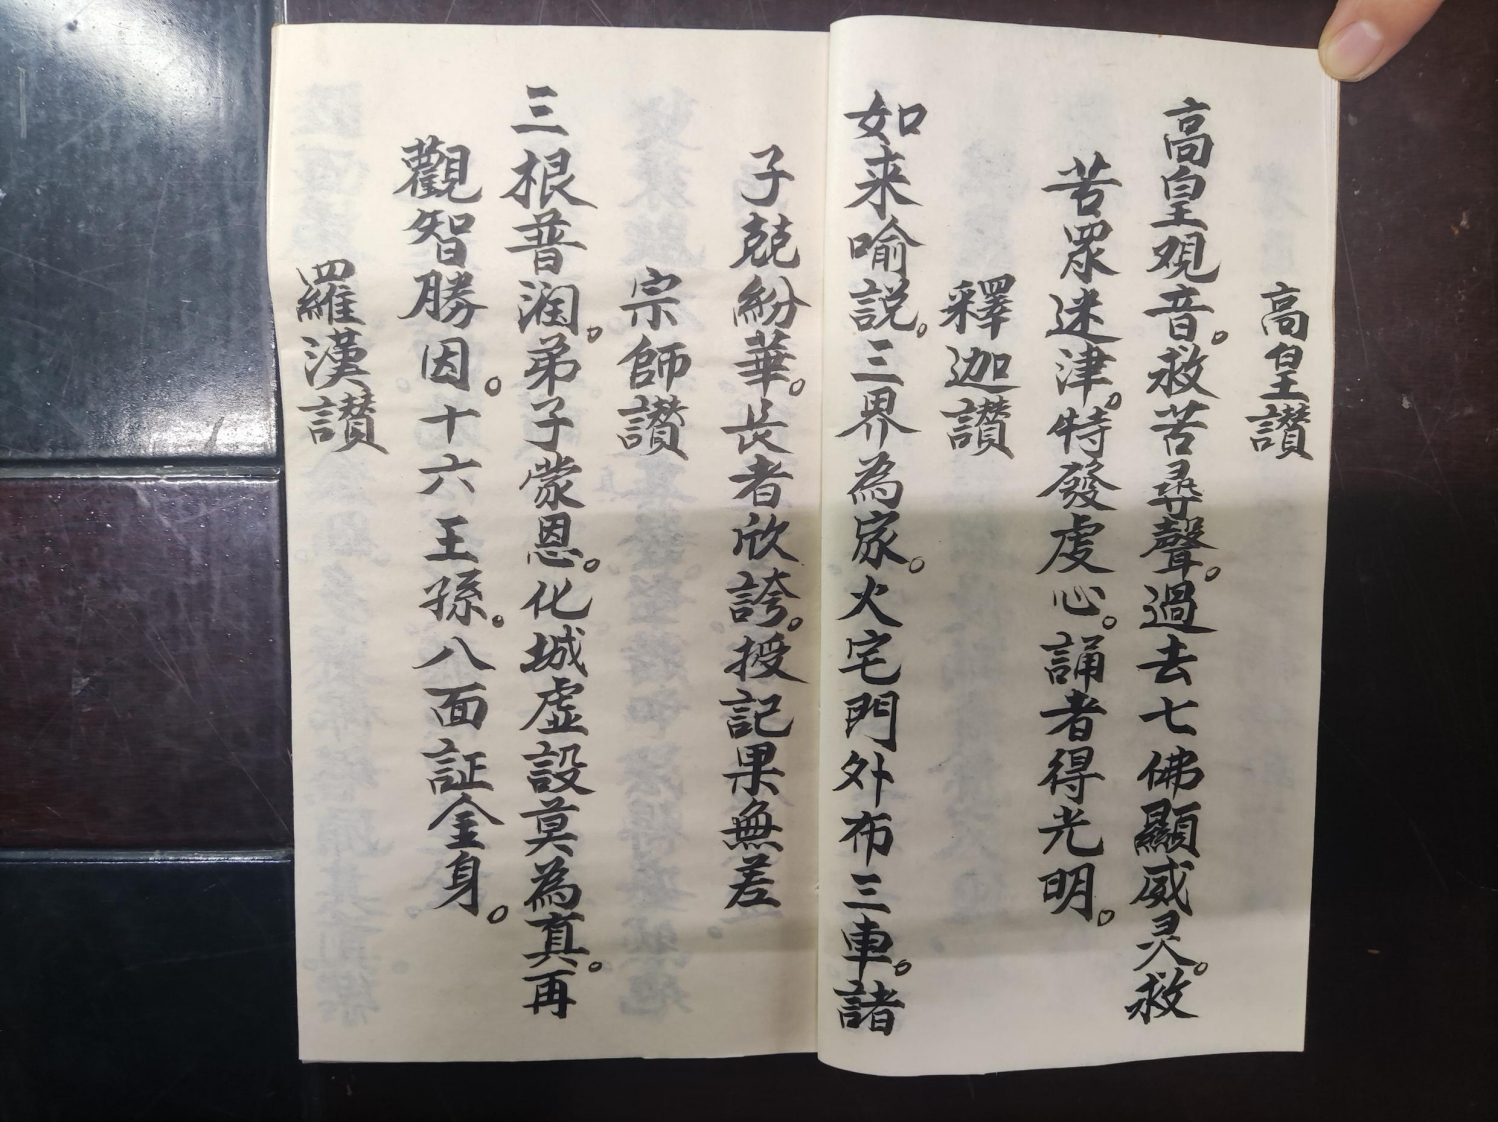 高皇讃
高皇观音。救苦尋聲。過去七佛顯威灵。救
苦眾迷津。特發虔心。誦者得光明。
釋迦讃
如来喻説。三界為家。火宅門外布三車。諸
子兢紛華。長者欣誇。授記果無差
宗師讃
三根普润。弟子蒙恩。化城虚設莫為真。再
觀智勝因。十六王孫。八面証金身。
羅漢讃